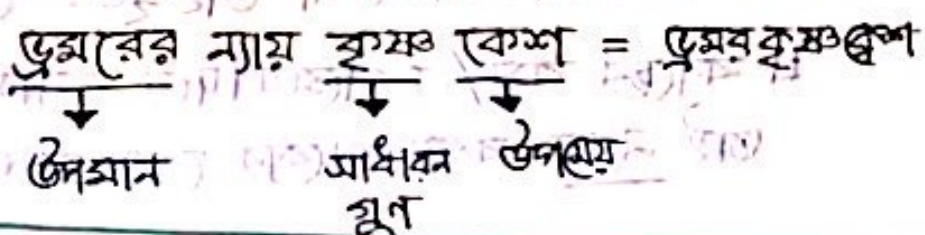 ভ্রমরের ন্যায় কৃষ্ণ কেশ = ভ্রমরকৃষ্ণকেশ
উপমান সাধারন উপমেয়
গুন